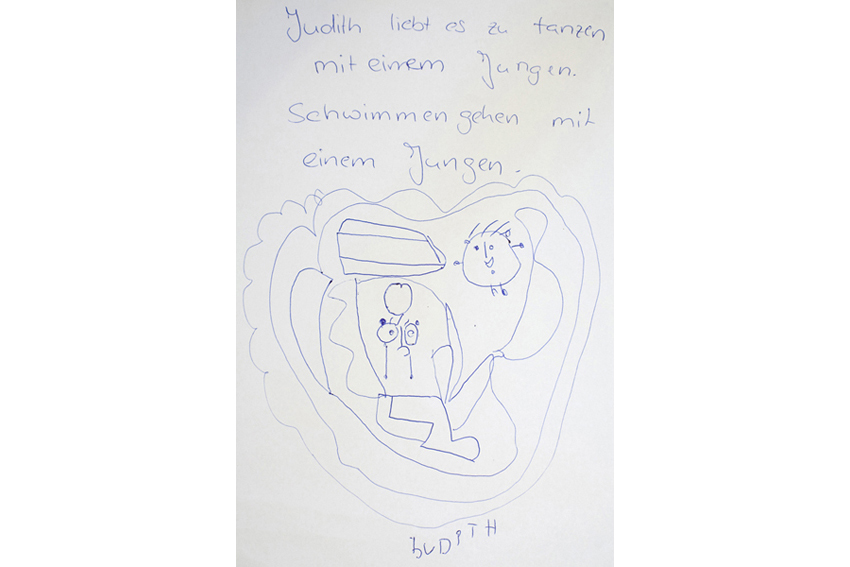 Judith liebt es zu tanzen
mit einem Jungen.
Schwimmen gehen mit
einem Jungen.
JUDiTH